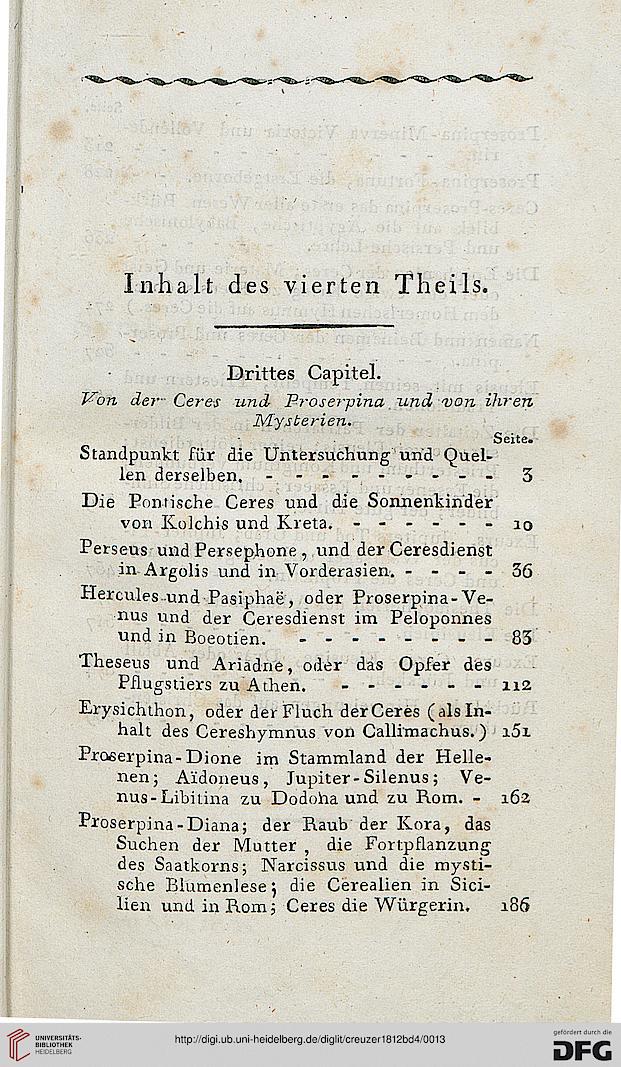 Inhalt des vierten Theils.
Drittes Capitel.
Von der Ceres und Proserpina und von ihren
Mysterien.
Seite.
Standpunkt für die Untersuchung und Quel-
len derselben. - - - - - - - - - 3
Die Pontische Ceres und die Sonnenkinder
von Kolchis und Kreta. - - - - - - 10
Perseus und Persephone, und der Ceresdienst
in Argolis und in Vorderasien. - - - - 36
Hercules und Pasiphaë, oder Proserpina-Ve-
nus und der Ceresdienst im Peloponnes
und in Boeotien. - - - - - - - - 83
Theseus und Ariadne, oder das Opfer des
Pflugstiers zu Athen. - - - - - - 112
Erysichthon, oder der Fluch der Ceres (als In-
halt des Cereshymnus von Callimachus.) 151
Proserpina-Dione im Stammland der Helle-
nen; Aïdoneus, Jupiter-Silenus; Ve-
nus-Libitina zu Dodona und zu Rom. - 162
Proserpina-Diana; der Raub der Kora, das
Suchen der Mutter, die Fortpflanzung
des Saatkorns; Narcissus und die mysti-
sche Blumenlese; die Cerealien in Sici-
lien und in Rom; Ceres die Würgerin. 186
UNIVERSITÄTS-
BIBLIOTHEK
HEIDELBERG
http://digi.ub.uni-heidelberg.de/diglit/creuzer1812bd4/0013
gefördert durch die
DFG